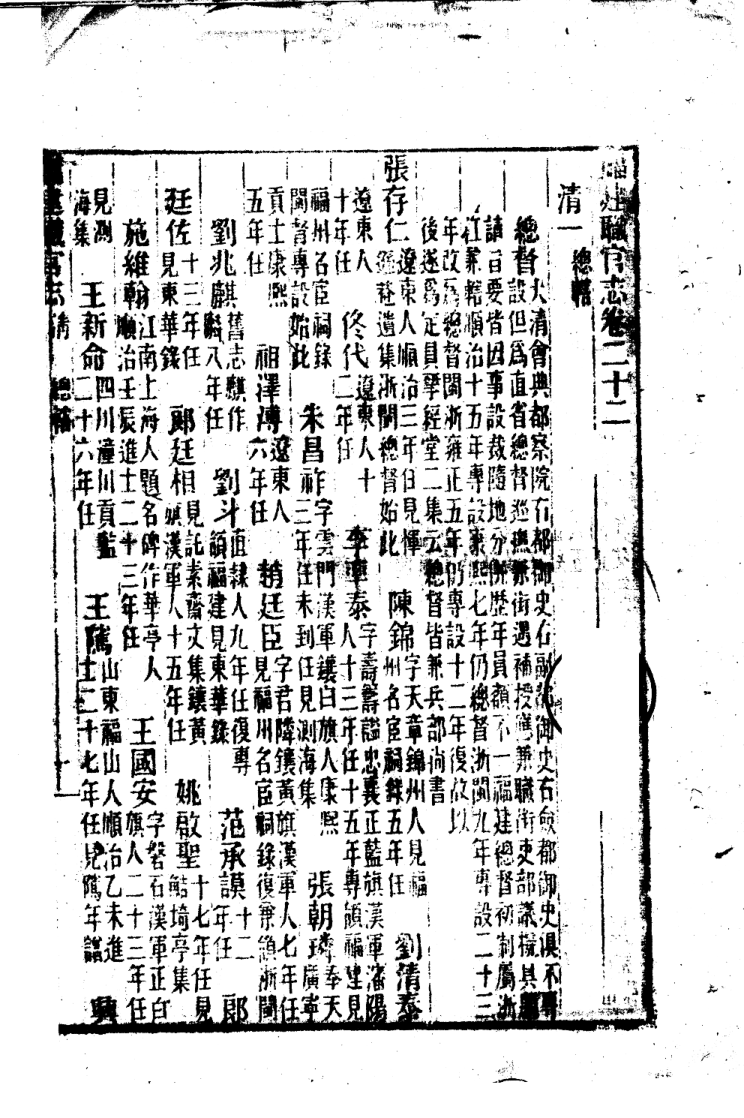 福建職官志卷二十二
清一 總轄
總督 大清會典都察院右都御史右副都御史右僉都御史俱不專
設但爲直省總督巡撫兼銜遇補授應兼職銜吏部議擬具題
請旨要皆因事設裁隨地分併歷年員額不一福建總督初制屬浙
江兼轄順治十五年專設康熙七年仍總督浙閩九年專設二十三
年改爲總督閩浙雍正五年仍專設十二年復故以
後遂爲定員揅經堂二集云總督皆兼兵部尚書
張存仁 遼東人順治三年任見惲遜菴遺集浙閩總督始此 陳錦 字天章錦州人見福州名宦祠錄五年任 劉清泰
遼東人十年任 佟代 遼東人十二年任 李率泰 字壽籌謚忠襄正藍旗漢軍瀋陽人十三年任十五年專領福建見
福州名宦祠錄閩督專設始此 朱昌祚 字雲門漢軍鑲白旗人康熙三年任未到任見測海集 張朝璘 奉天廣寧
貢士康熙五年任 祖澤溥 遼東人六年任 趙廷臣 字君隣鑲黃旗漢軍人七年任見福州名宦祠錄復兼領浙閩
劉兆麒 舊志麒作麟八年任 劉斗 直隸人九年任復專領福建見東華錄 范承謨 十二年任 郎
廷佐 十三年任見東華錄 郎廷相 見託素齋文集鑲黃旗漢軍人十五年任 姚啟聖 十七年任見鮚埼亭集
施維翰 江南上海人題名碑作華亭人順治壬辰進士二十三年任 王國安 字磐石漢軍正白旗人二十三年任
見測海集 王新命 四川潼川貢監二十六年任 王隲 山東福山人順治乙未進士二十七年任見隲年譜 興
福建職官志 清 總轄 一